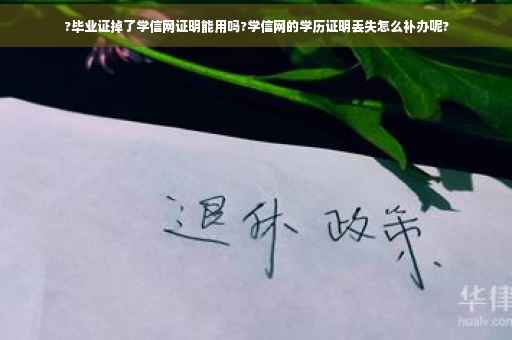 ?毕业证掉了学信网证明能用吗?学信网的学历证明丢失怎么补办呢?
退休 政策
华律
hualv.com